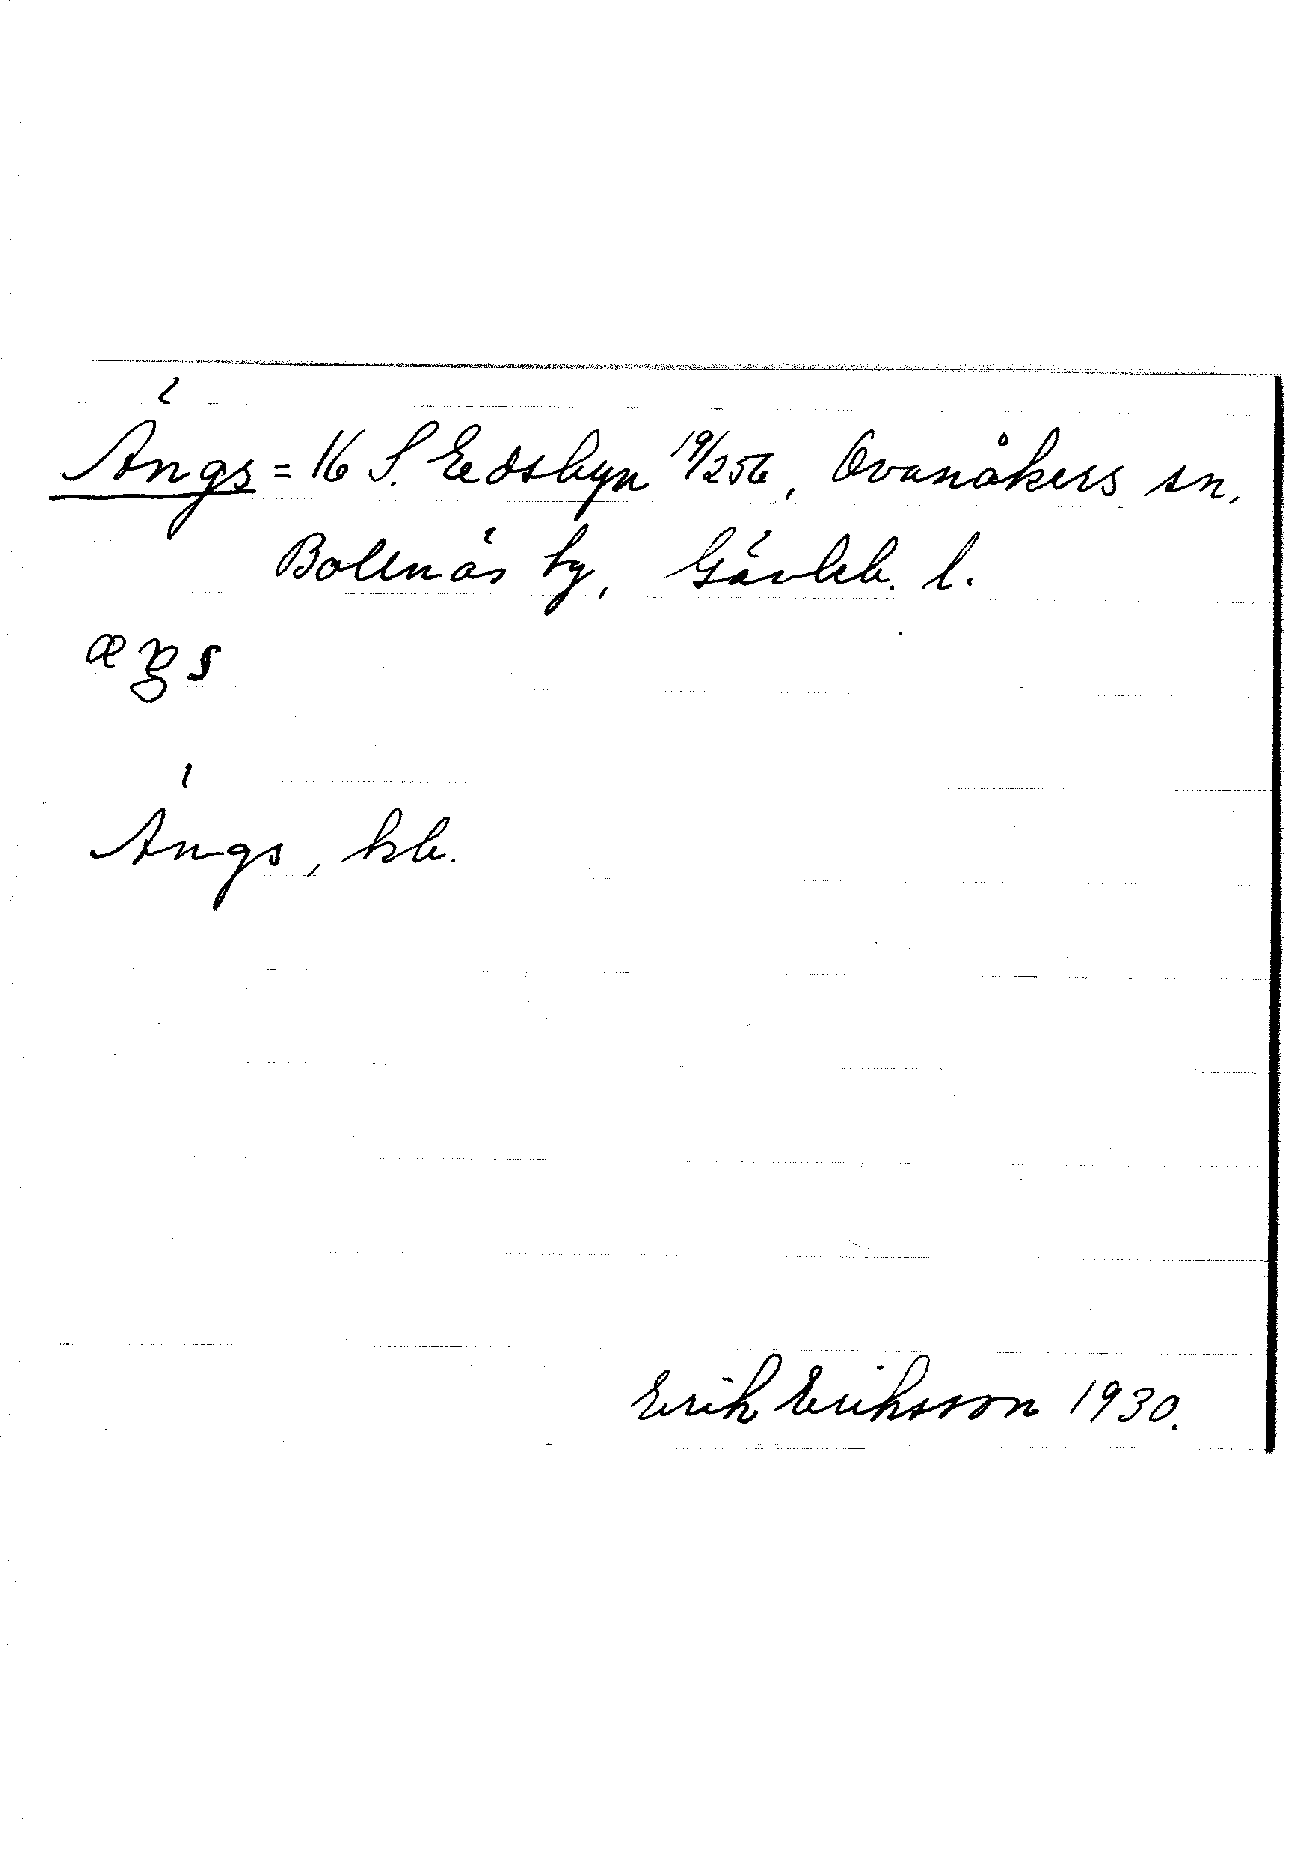 Ängs = 16 S. Edsbyn 19/256, Ovanåkers sn,
Bollnäs tg, Gävleb. l.
Ängs, kb.
Erik Eriksson 1930.